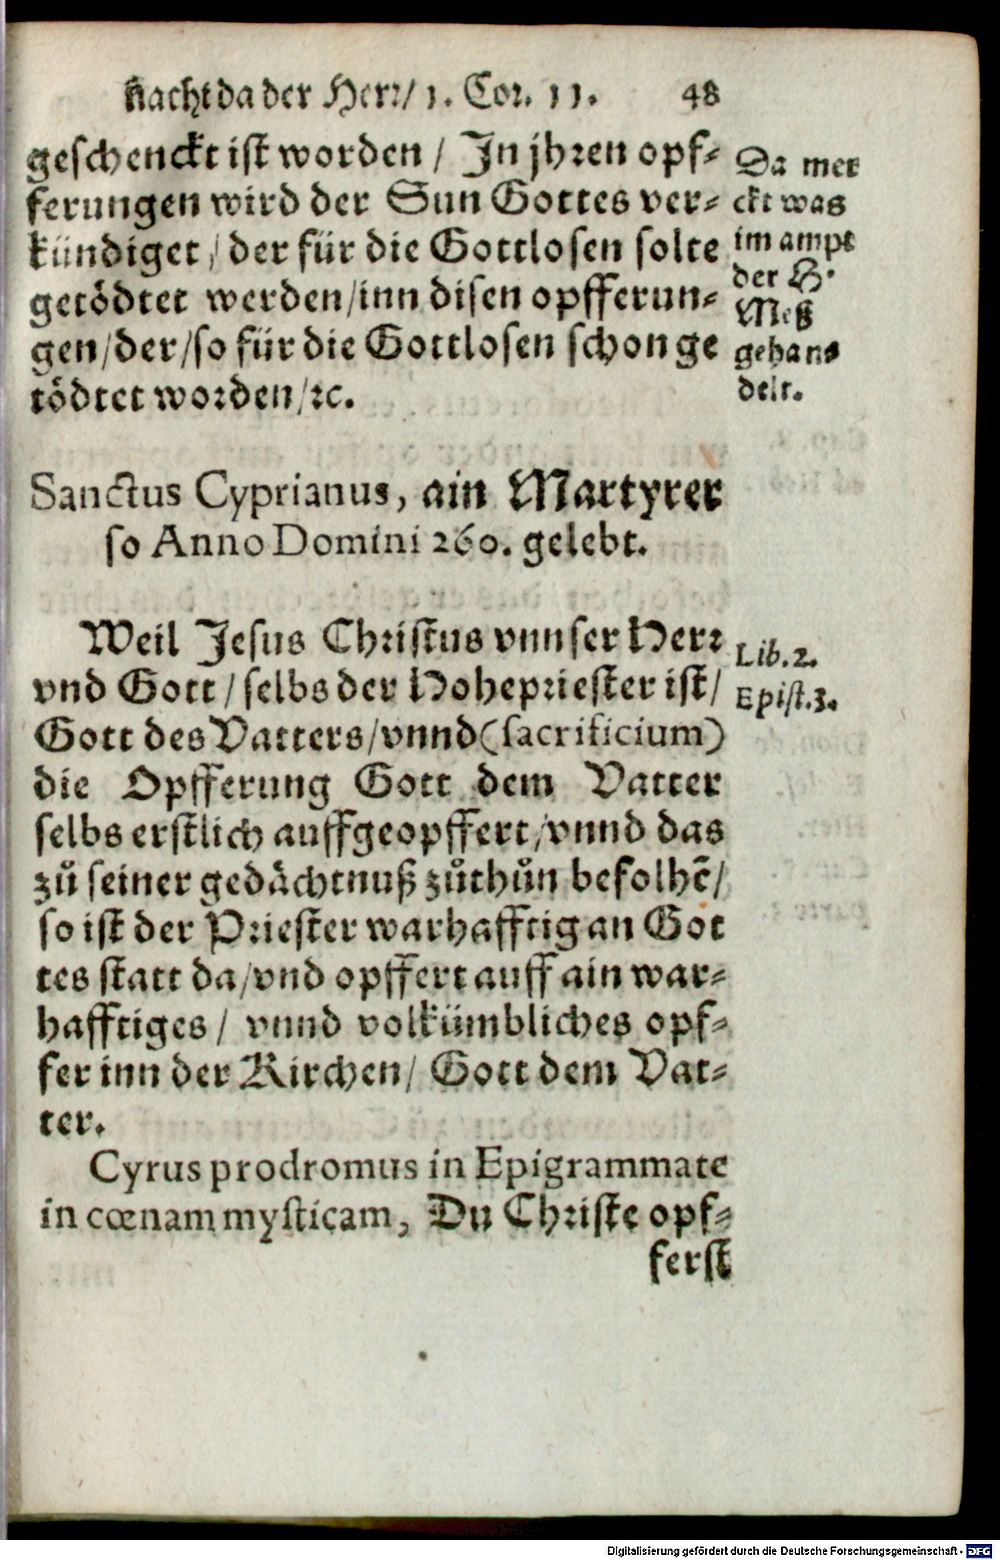 Nacht da der Herr/ 1. Cor. 11. 48
geschenckt ist worden / In jhren opf-
ferungen wird der Sun Gottes ver-
kündiget / der für die Gottlosen solte
getödtet werden/inn disen opfferun-
gen/der/so für die Gottlosen schon ge
tödtet worden/ꝛc.
Da mer
ckt was
im ampt
der H.
Meß
gehan-
delt.
Sanctus Cyprianus, ain Martyrer
so Anno Domini 260. gelebt.
Weil Jesus Christus vnnser Herr
vnd Gott / selbs der Hohepriester ist/
Gott des Vatters/vnnd (sacrificium)
die Opfferung Gott dem Vatter
selbs erstlich auffgeopffert/vnnd das
zuͦ seiner gedächtnuß zuͦthuͦn befolhẽ/
so ist der Priester warhafftig an Got
tes statt da/vnd opffert auff ain war-
hafftiges / vnnd volkümbliches opf-
fer inn der Kirchen/ Gott dem Vat-
ter.
Lib. 2.
Epist. 3.
Cyrus prodromus in Epigrammate
in cœnam mysticam, Du Christe opf-
ferst
Digitalisierung gefördert durch die Deutsche Forschungsgemeinschaft - DFG